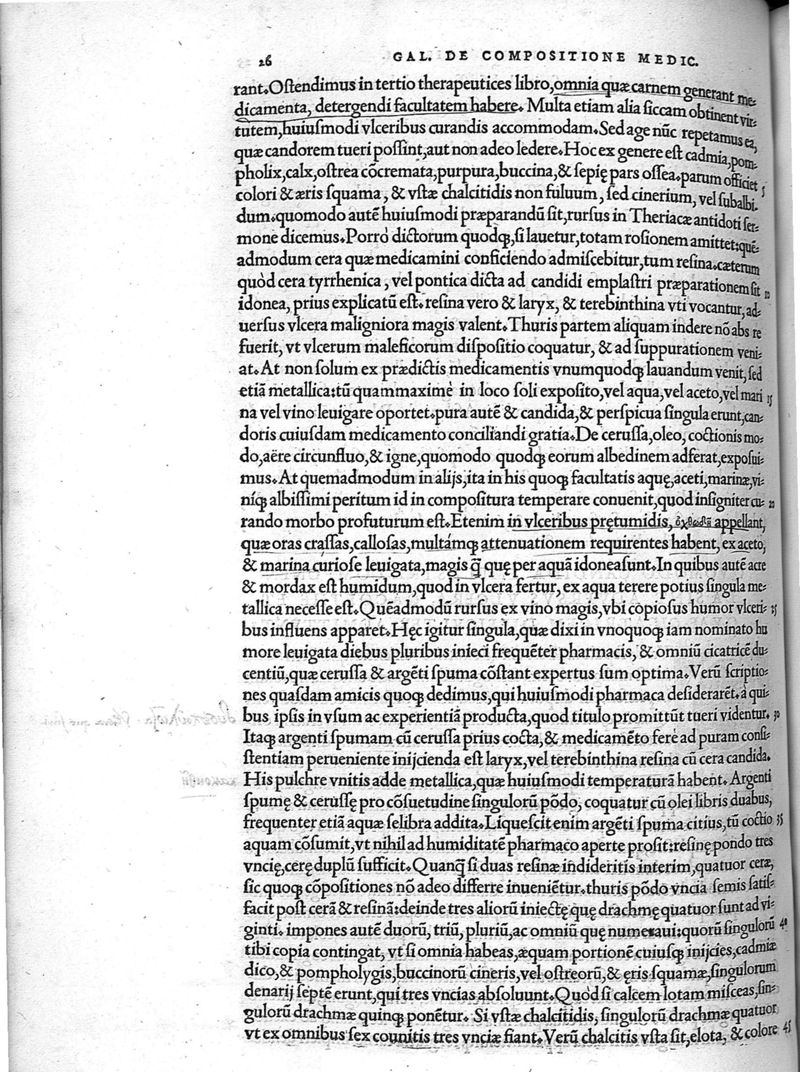 26 GAL. DE COMPOSITIONE MEDIC.
rant. Oſtendimus in tertio therapeutices libro, omnia quæ carnem generant me⸗
dicamenta, detergendi facultatem habere. Multa etiam alia ſiccam obtinent vir⸗
tutem, huiuſmodi vlceribus curandis accommodam. Sed age nũc repetamus ea,
quæ candorem tueri poſſint, aut non adeo ledere. Hoc ex genere eſt cadmia, pom⸗
pholix, calx, oſtrea cõcremata, purpura, buccina, & ſepię pars oſſea. parum officiet 5
colori & æris ſquama, & vſtæ chalcitidis non fuluum, ſed cinerium, vel ſubalbi⸗
dum. quomodo autẽ huiuſmodi præparandũ ſit, rurſus in Theriacæ antidoti ſer⸗
mone dicemus. Porrò dictorum quodqꝫ, ſi lauetur, totam roſionem amittet: quẽ⸗
admodum cera quæ medicamini conficiendo admiſcebitur, tum reſina. cæterum
quòd cera tyrrhenica, vel pontica dicta ad candidi emplaſtri præparationem ſit 10
idonea, prius explicatũ eſt. reſina vero & laryx, & terebinthina vti vocantur, ad⸗
uerſus vlcera maligniora magis valent. Thuris partem aliquam indere nõ abs re
fuerit, vt vlcerum maleficorum diſpoſitio coquatur, & ad ſuppurationem veni⸗
at. At non ſolum ex prædictis medicamentis vnumquodqꝫ lauandum venit, ſed
etiã metallica: tũ quammaximè in loco ſoli expoſito, vel aqua, vel aceto, vel mari 15
na vel vino leuigare oportet. pura autẽ & candida, & perſpicua ſingula erunt, can⸗
doris cuiuſdam medicamento conciliandi gratia. De ceruſſa, oleo, coctionis mo⸗
do, aëre circunfluo, & igne, quomodo quodqꝫ eorum albedinem adferat, expoſui⸗
mus. At quemadmodum in alijs, ita in his quoqꝫ facultatis aquę, aceti, marinæ, vi⸗
niqꝫ albiſſimi peritum id in compoſitura temperare conuenit, quod inſigniter cu⸗ 20
rando morbo profuturum eſt. Etenim in vlceribus prętumidis, appellant,
quæ oras craſſas, calloſas, multámqꝫ attenuationem requirentes habent, ex aceto,
& marina curioſe leuigata, magis q̃ quę per aquã idonea ſunt. In quibus autẽ acre
& mordax eſt humidum, quod in vlcera fertur, ex aqua terere potius ſingula me⸗
tallica neceſſe eſt. Quẽadmodũ rurſus ex vino magis, vbi copioſus humor vlceri⸗ 25
bus influens apparet. Hęc igitur ſingula, quæ dixi in vnoquoqꝫ iam nominato hu
more leuigata diebus pluribus inieci frequẽter pharmacis, & omniũ cicatricẽ du⸗
centiũ, quæ ceruſſa & argẽti ſpuma cõſtant expertus ſum optima. Verũ ſcriptio⸗
nes quaſdam amicis quoqꝫ dedimus, qui huiuſmodi pharmaca deſiderarẽt. a qui⸗
bus ipſis in vſum ac experientiã producta, quod titulo promittũt tueri videntur. 30
Itaqꝫ argenti ſpumam cũ ceruſſa prius cocta, & medicamẽto ferè ad puram conſi⸗
ſtentiam perueniente inijcienda eſt laryx, vel terebinthina reſina cũ cera candida.
His pulchre vnitis adde metallica, quæ huiuſmodi temperaturã habent. Argenti
ſpumę & ceruſſę pro cõſuetudine ſingulorũ põdo, coquatur cũ olei libris duabus,
frequenter etiã aquæ ſelibra addita. Liqueſcit enim argẽti ſpuma citius, tũ coctio 35
aquam cõſumit, vt nihil ad humiditatẽ pharmaco aperte proſit: reſinę pondo tres
vncię, cerę duplũ ſufficit. Quanq̃ ſi duas reſinæ indideritis interim, quatuor ceræ,
ſic quoqꝫ cõpoſitiones nõ adeo differre inueniẽtur. thuris põdo vncia ſemis ſatiſ⸗
facit poſt cerã & reſinã: deinde tres aliorũ iniectę quę drachmę quatuor ſunt ad vi⸗
ginti. impones autẽ duorũ, triũ, pluriũ, ac omniũ quę numeraui: quorũ ſingulorũ 40
tibi copia contingat, vt ſi omnia habeas, æquam portionẽ cuiuſqꝫ inijcies, cadmiæ
dico, & pompholygis, buccinorũ cineris, vel oſtreorũ, & ęris ſquamæ, ſingulorum
denarij ſeptẽ erunt, qui tres vncias abſoluunt. Quòd ſi calcem lotam miſceas, ſin⸗
gulorũ drachmæ quinqꝫ ponẽtur. Si vſtæ chalcitidis, ſingulorũ drachmæ quatuor
vt ex omnibus ſex counitis tres vnciæ fiant. Verũ chalcitis vſta ſit, elota, & colore 45